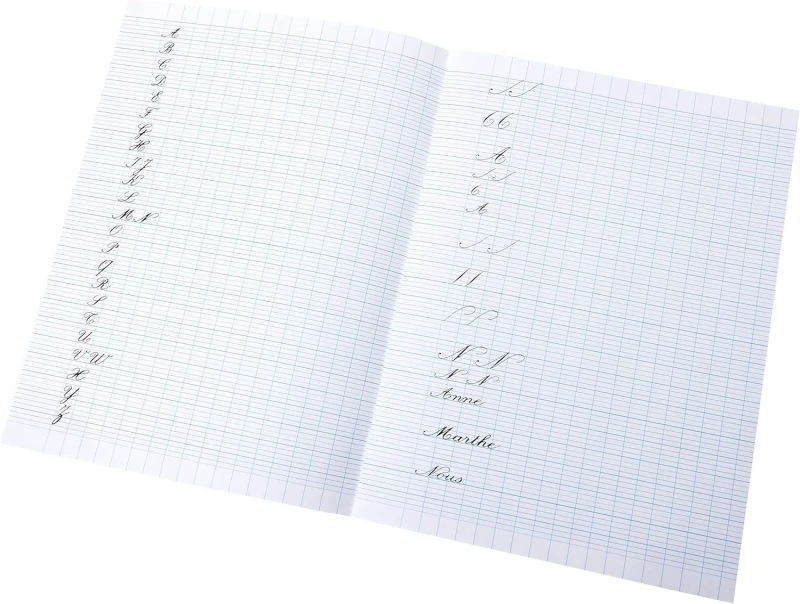 A
B
C
D
E
F
G
H
I J
K
L
M N
O
P
Q
R
S
T
U
V W
X
Y
Z
A
A
N N
N N
Anne
Marthe
Nous